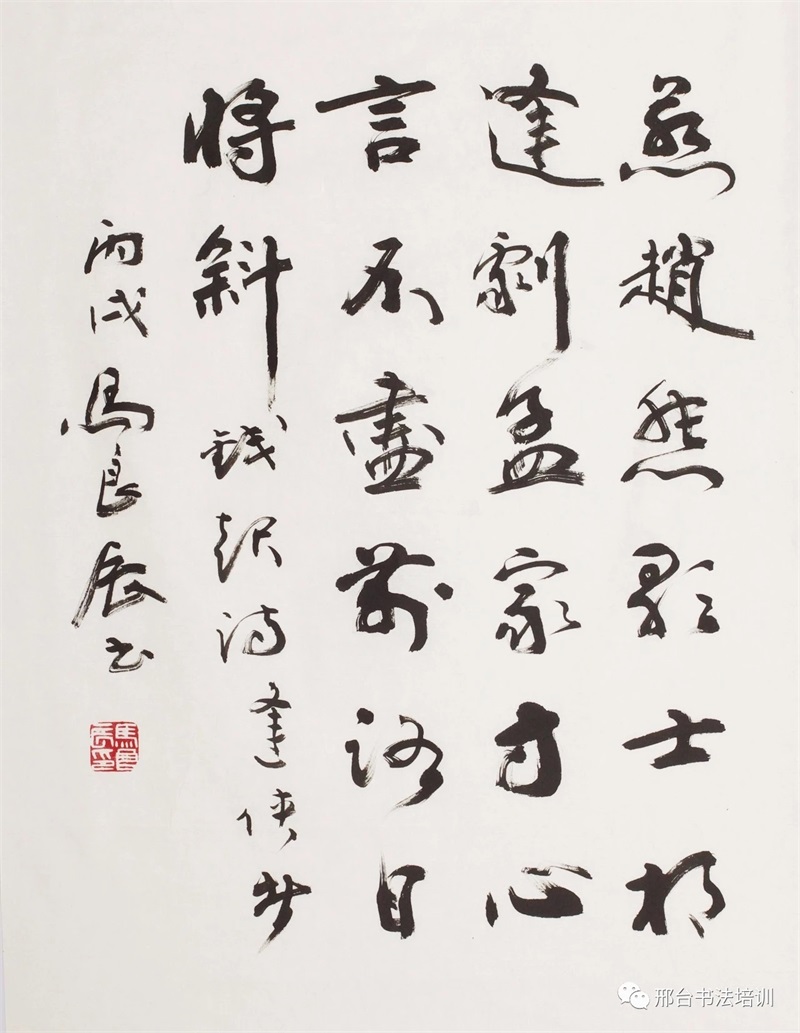 燕趙悲歌士相
逢劇孟家寸心
言不盡前路日
将斜 錢起詩逢俠者
丙戌馬良辰书
馬良辰印
邢台书法培训